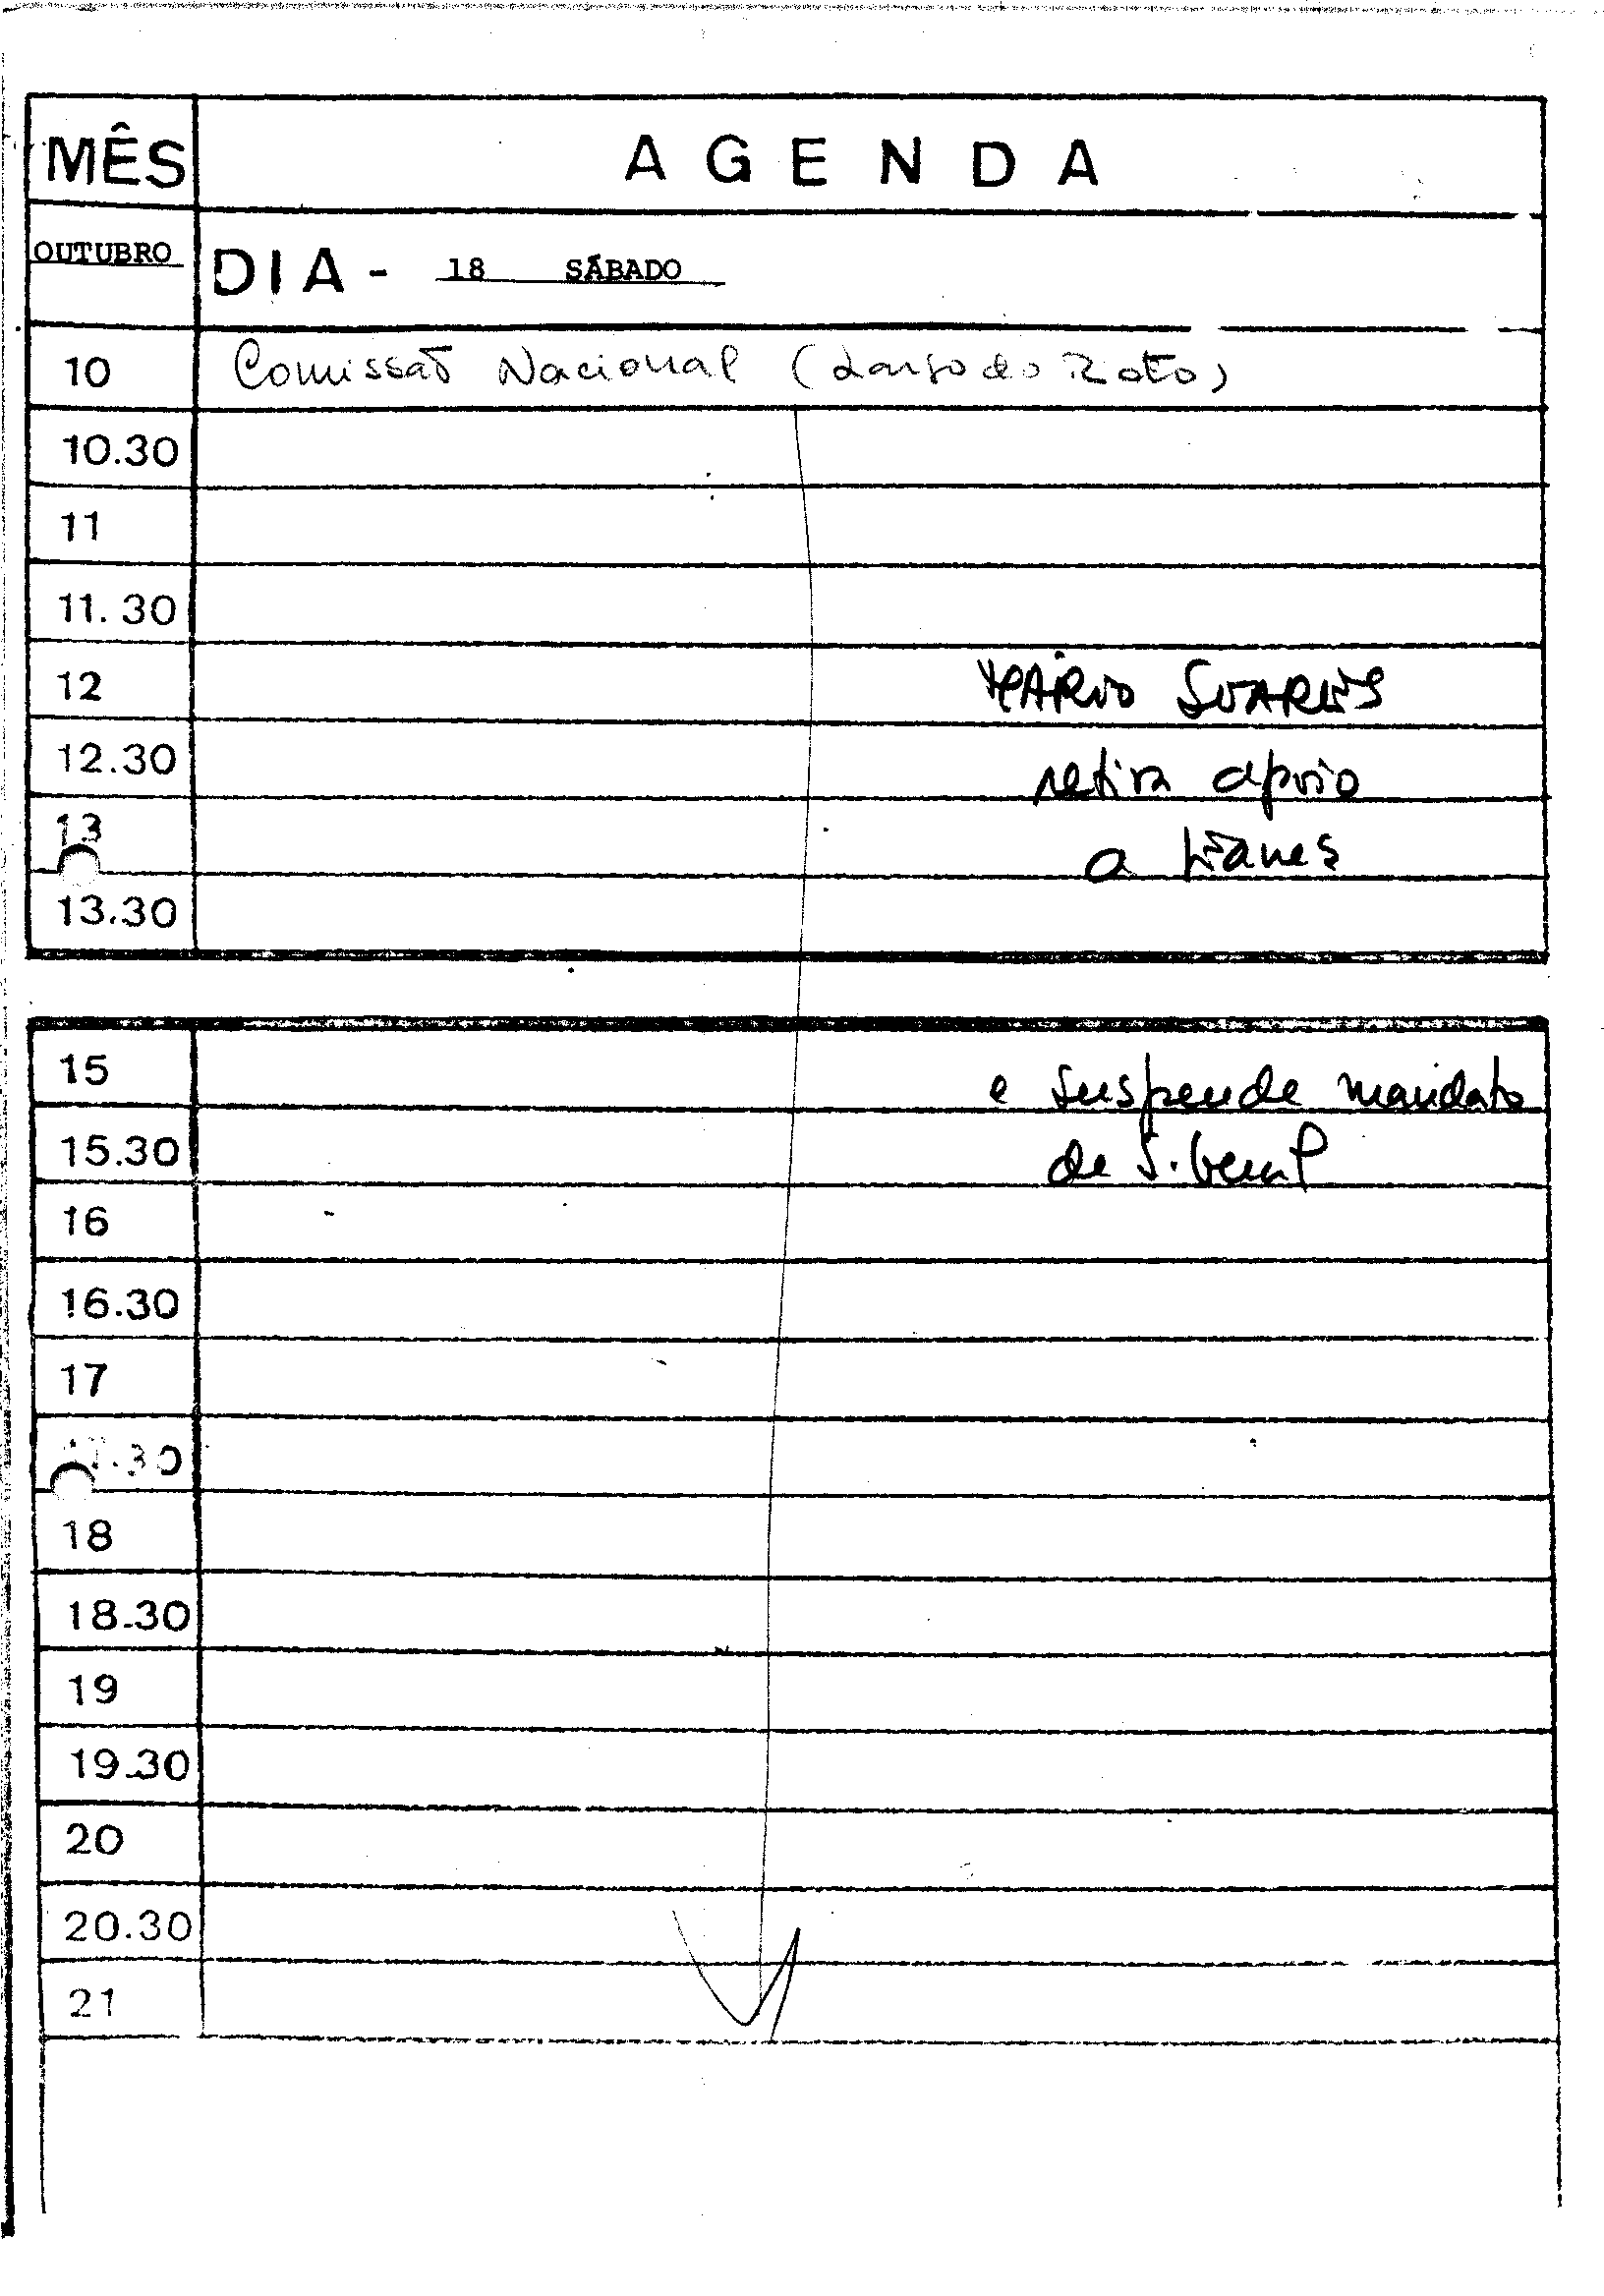 MÊS AGENDA
OUTUBRO DIA - 18 SÁBADO
10 Comissão Nacional (Largo do Rato)
10.30
11
11.30
12 MÁRIO SOARES
12.30 retira apoio
13 a Eanes
13.30
15 e suspende mandato
15.30 de S. Geral
16
16.30
17
17.30
18
18.30
19
19.30
20
20.30
21